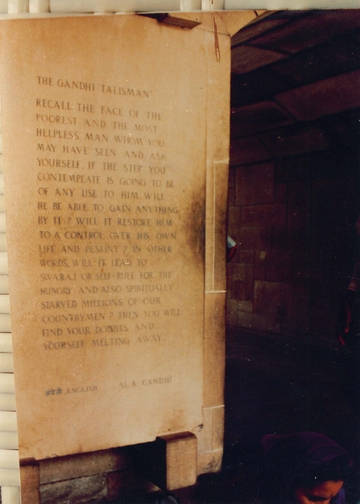 THE GANDHI TALISMAN
RECALL THE FACE OF THE
POOREST AND THE MOST
HELPLESS MAN WHOM YOU
MAY HAVE SEEN AND ASK
YOURSELF, IF THE STEP YOU
CONTEMPLATE IS GOING TO BE
OF ANY USE TO HIM. WILL
HE BE ABLE TO GAIN ANYTHING
BY IT? WILL IT RESTORE HIM
TO A CONTROL OVER HIS OWN
LIFE AND DESTINY? IN OTHER
WORDS, WILL IT LEAD TO
SWARAJ OR SELF-RULE FOR THE
HUNGRY AND ALSO SPIRITUALLY
STARVED MILLIONS OF OUR
COUNTRYMEN? THEN YOU WILL
FIND YOUR DOUBTS AND
YOURSELF MELTING AWAY.
ENGLISH M.K. GANDHI